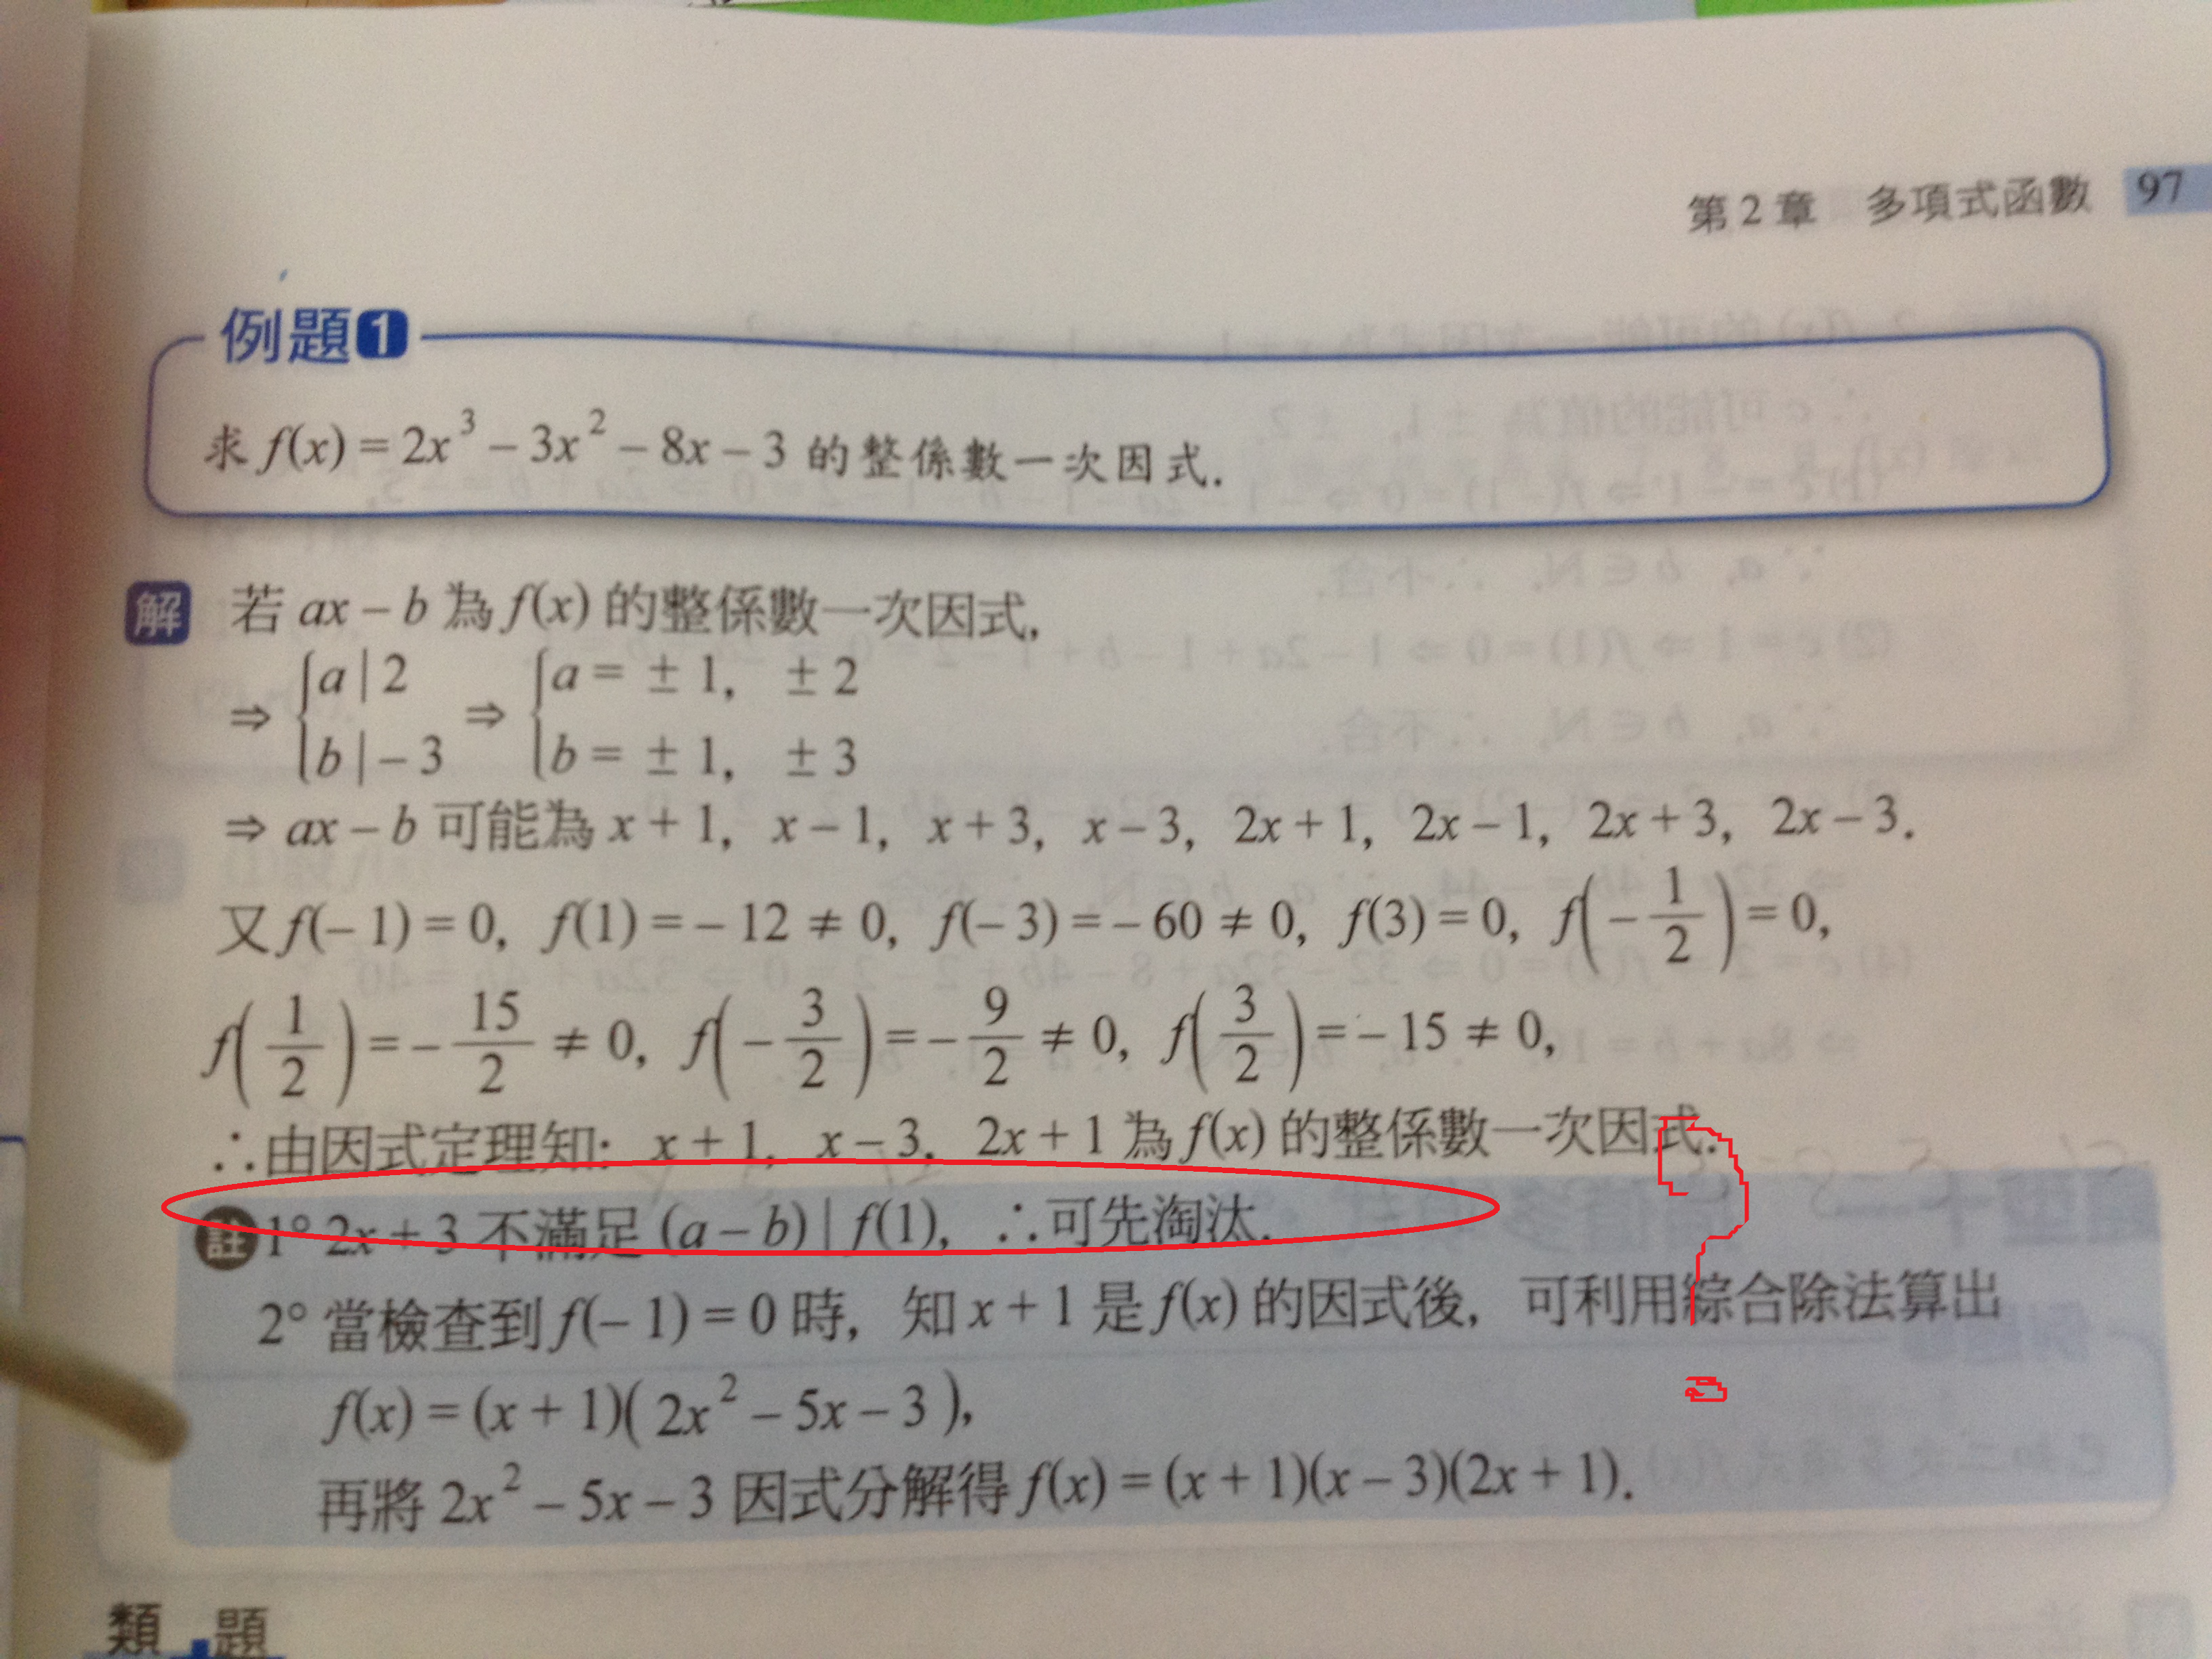 第 2 章 多項式函數 97
例題1
求 f(x) = 2x³ − 3x² − 8x − 3 的整係數一次因式.
解 若 ax − b 為 f(x) 的整係數一次因式,
⇒ { a | 2 ⇒ { a = ± 1, ± 2
b | − 3 b = ± 1, ± 3
⇒ ax − b 可能為 x + 1, x − 1, x + 3, x − 3, 2x + 1, 2x − 1, 2x + 3, 2x − 3.
又 f(− 1) = 0, f(1) = − 12 ≠ 0, f(− 3) = − 60 ≠ 0, f(3) = 0, f(− 1/2) = 0,
f(1/2) = − 15/2 ≠ 0, f(− 3/2) = − 9/2 ≠ 0, f(3/2) = − 15 ≠ 0,
∴由因式定理知: x + 1, x − 3, 2x + 1 為 f(x) 的整係數一次因式.
註 1° 2x + 3 不滿足 (a − b) | f(1), ∴可先淘汰.
2° 當檢查到 f(− 1) = 0 時, 知 x + 1 是 f(x) 的因式後, 可利用綜合除法算出
f(x) = (x + 1)( 2x² − 5x − 3 ),
再將 2x² − 5x − 3 因式分解得 f(x) = (x + 1)(x − 3)(2x + 1).
類 題